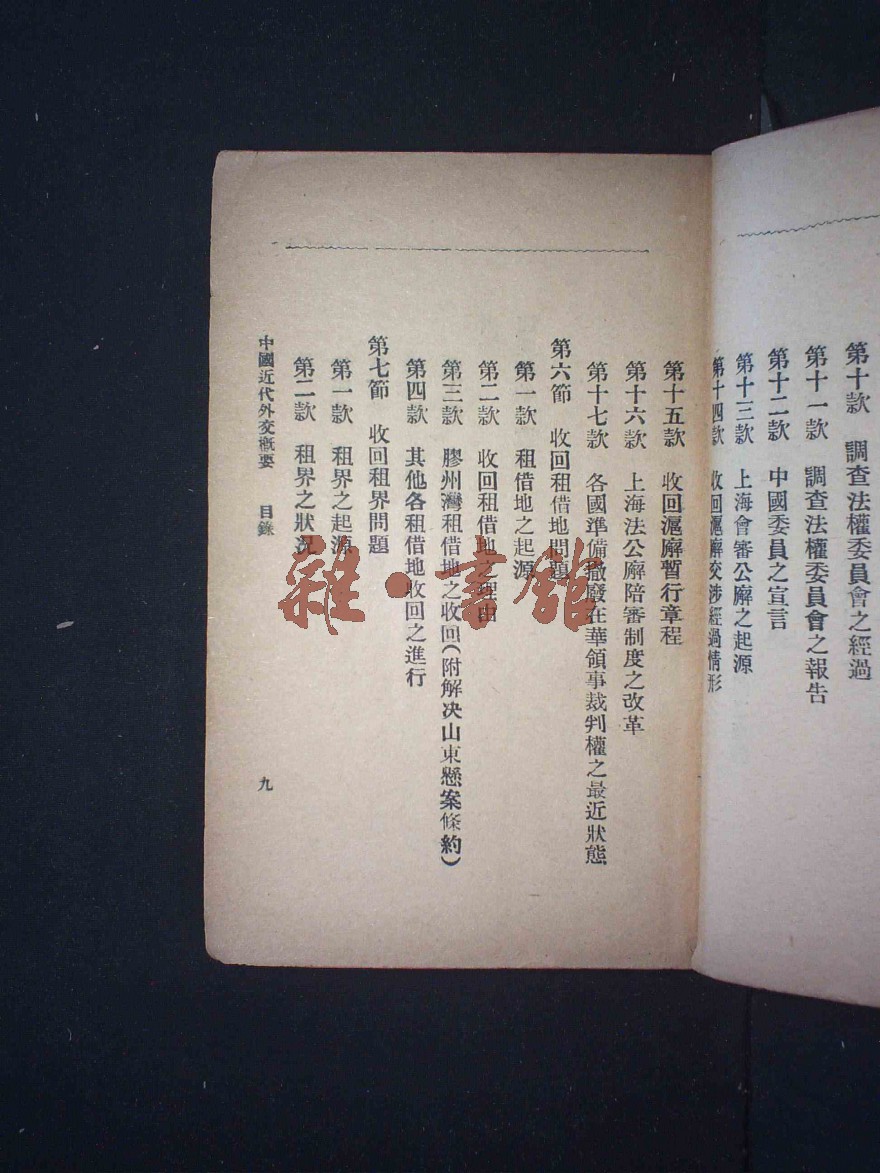 第十款 調查法權委員會之經過
第十一款 調查法權委員會之報告
第十二款 中國委員之宣言
第十三款 上海會審公廨之起源
第十四款 收回滬廨交涉經過情形
第十五款 收回滬廨暫行章程
第十六款 上海法公廨陪審制度之改革
第十七款 各國準備撤廢在華領事裁判權之最近狀態
第六節 收回租借地問題
第一款 租借地之起源
第二款 收回租借地之理由
第三款 膠州灣租借地之收回(附解決山東懸案條約)
第四款 其他各租借地收回之進行
第七節 收回租界問題
第一款 租界之起源
第二款 租界之狀況
中國近代外交槪要 目錄
九
雜·書館